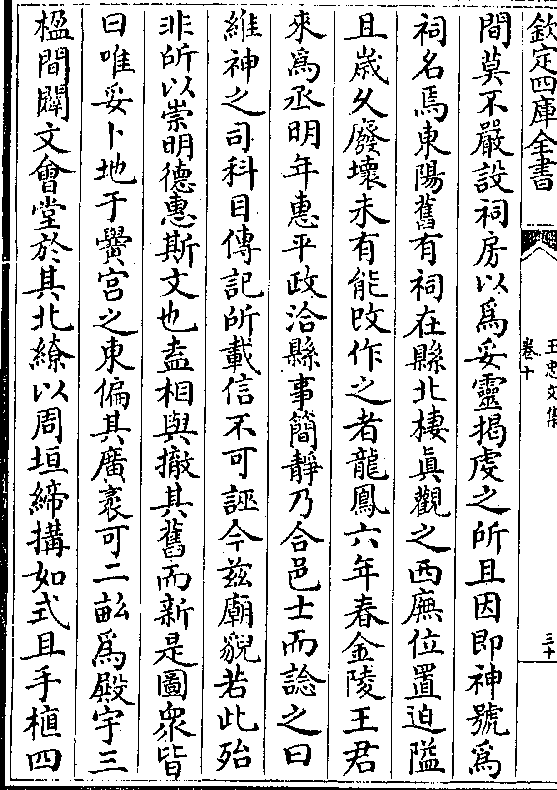 欽定四庫全書
王忠文集
卷十
三十
間莫不嚴設祠房以為妥靈揭虔之所且因即神號為
祠名焉東陽舊有祠在縣北棲真觀之西廡位置迫隘
且嵗久廢壞未有能改作之者龍鳳六年春金陵王君
來為丞明年惠平政洽縣事簡靜乃合邑士而諗之曰
維神之司科目傳記所載信不可誣今兹廟貌若此殆
非所以崇明德惠斯文也盍相與撤其舊而新是圖衆皆
曰唯妥卜地于黌宫之東偏其廣袤可二畝為殿宇三
楹間闢文會堂於其北繚以周垣締搆如式且手植四